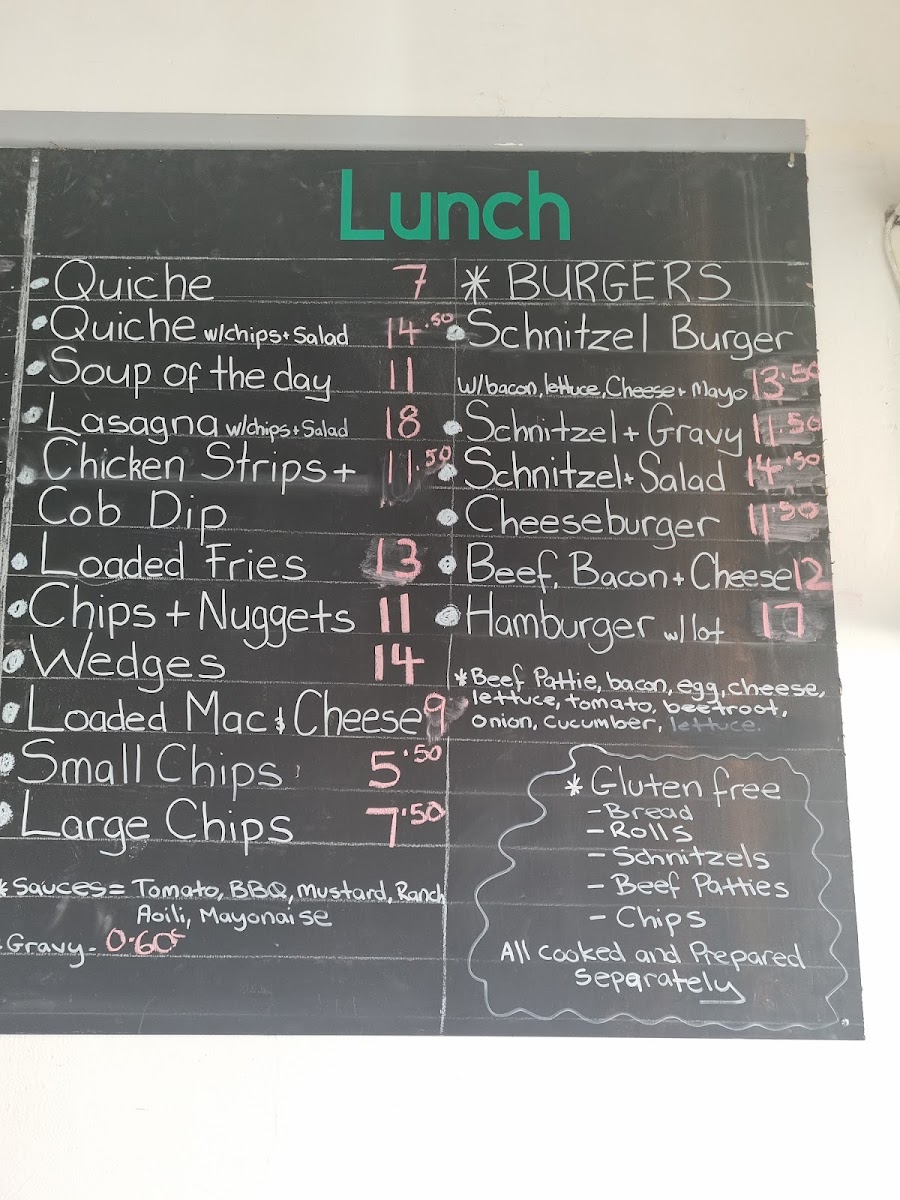 Lunch
Quiche 7
Quiche w/chips+Salad 14.50
Soup of the day 11
Lasagna w/chips+Salad 18
Chicken Strips + 11.50
Cob Dip
Loaded Fries 13
Chips + Nuggets 11
Wedges 14
Loaded Mac & Cheese 9
Small Chips 5.50
Large Chips 7.50
* Sauces = Tomato, BBQ, Mustard, Ranch
Aoili, Mayonaise
- Gravy - 0.60¢
* BURGERS
Schnitzel Burger
w/bacon, lettuce, Cheese + Mayo 13.50
Schnitzel + Gravy 11.50
Schnitzel + Salad 14.50
Cheeseburger 11.50
Beef, Bacon + Cheese 12
Hamburger w/ lot 17
* Beef Pattie, bacon, egg, cheese,
lettuce, tomato, beetroot,
onion, cucumber, lettuce.
* Gluten free
- Bread
- Rolls
- Schnitzels
- Beef Patties
- Chips
All cooked and Prepared
Separately